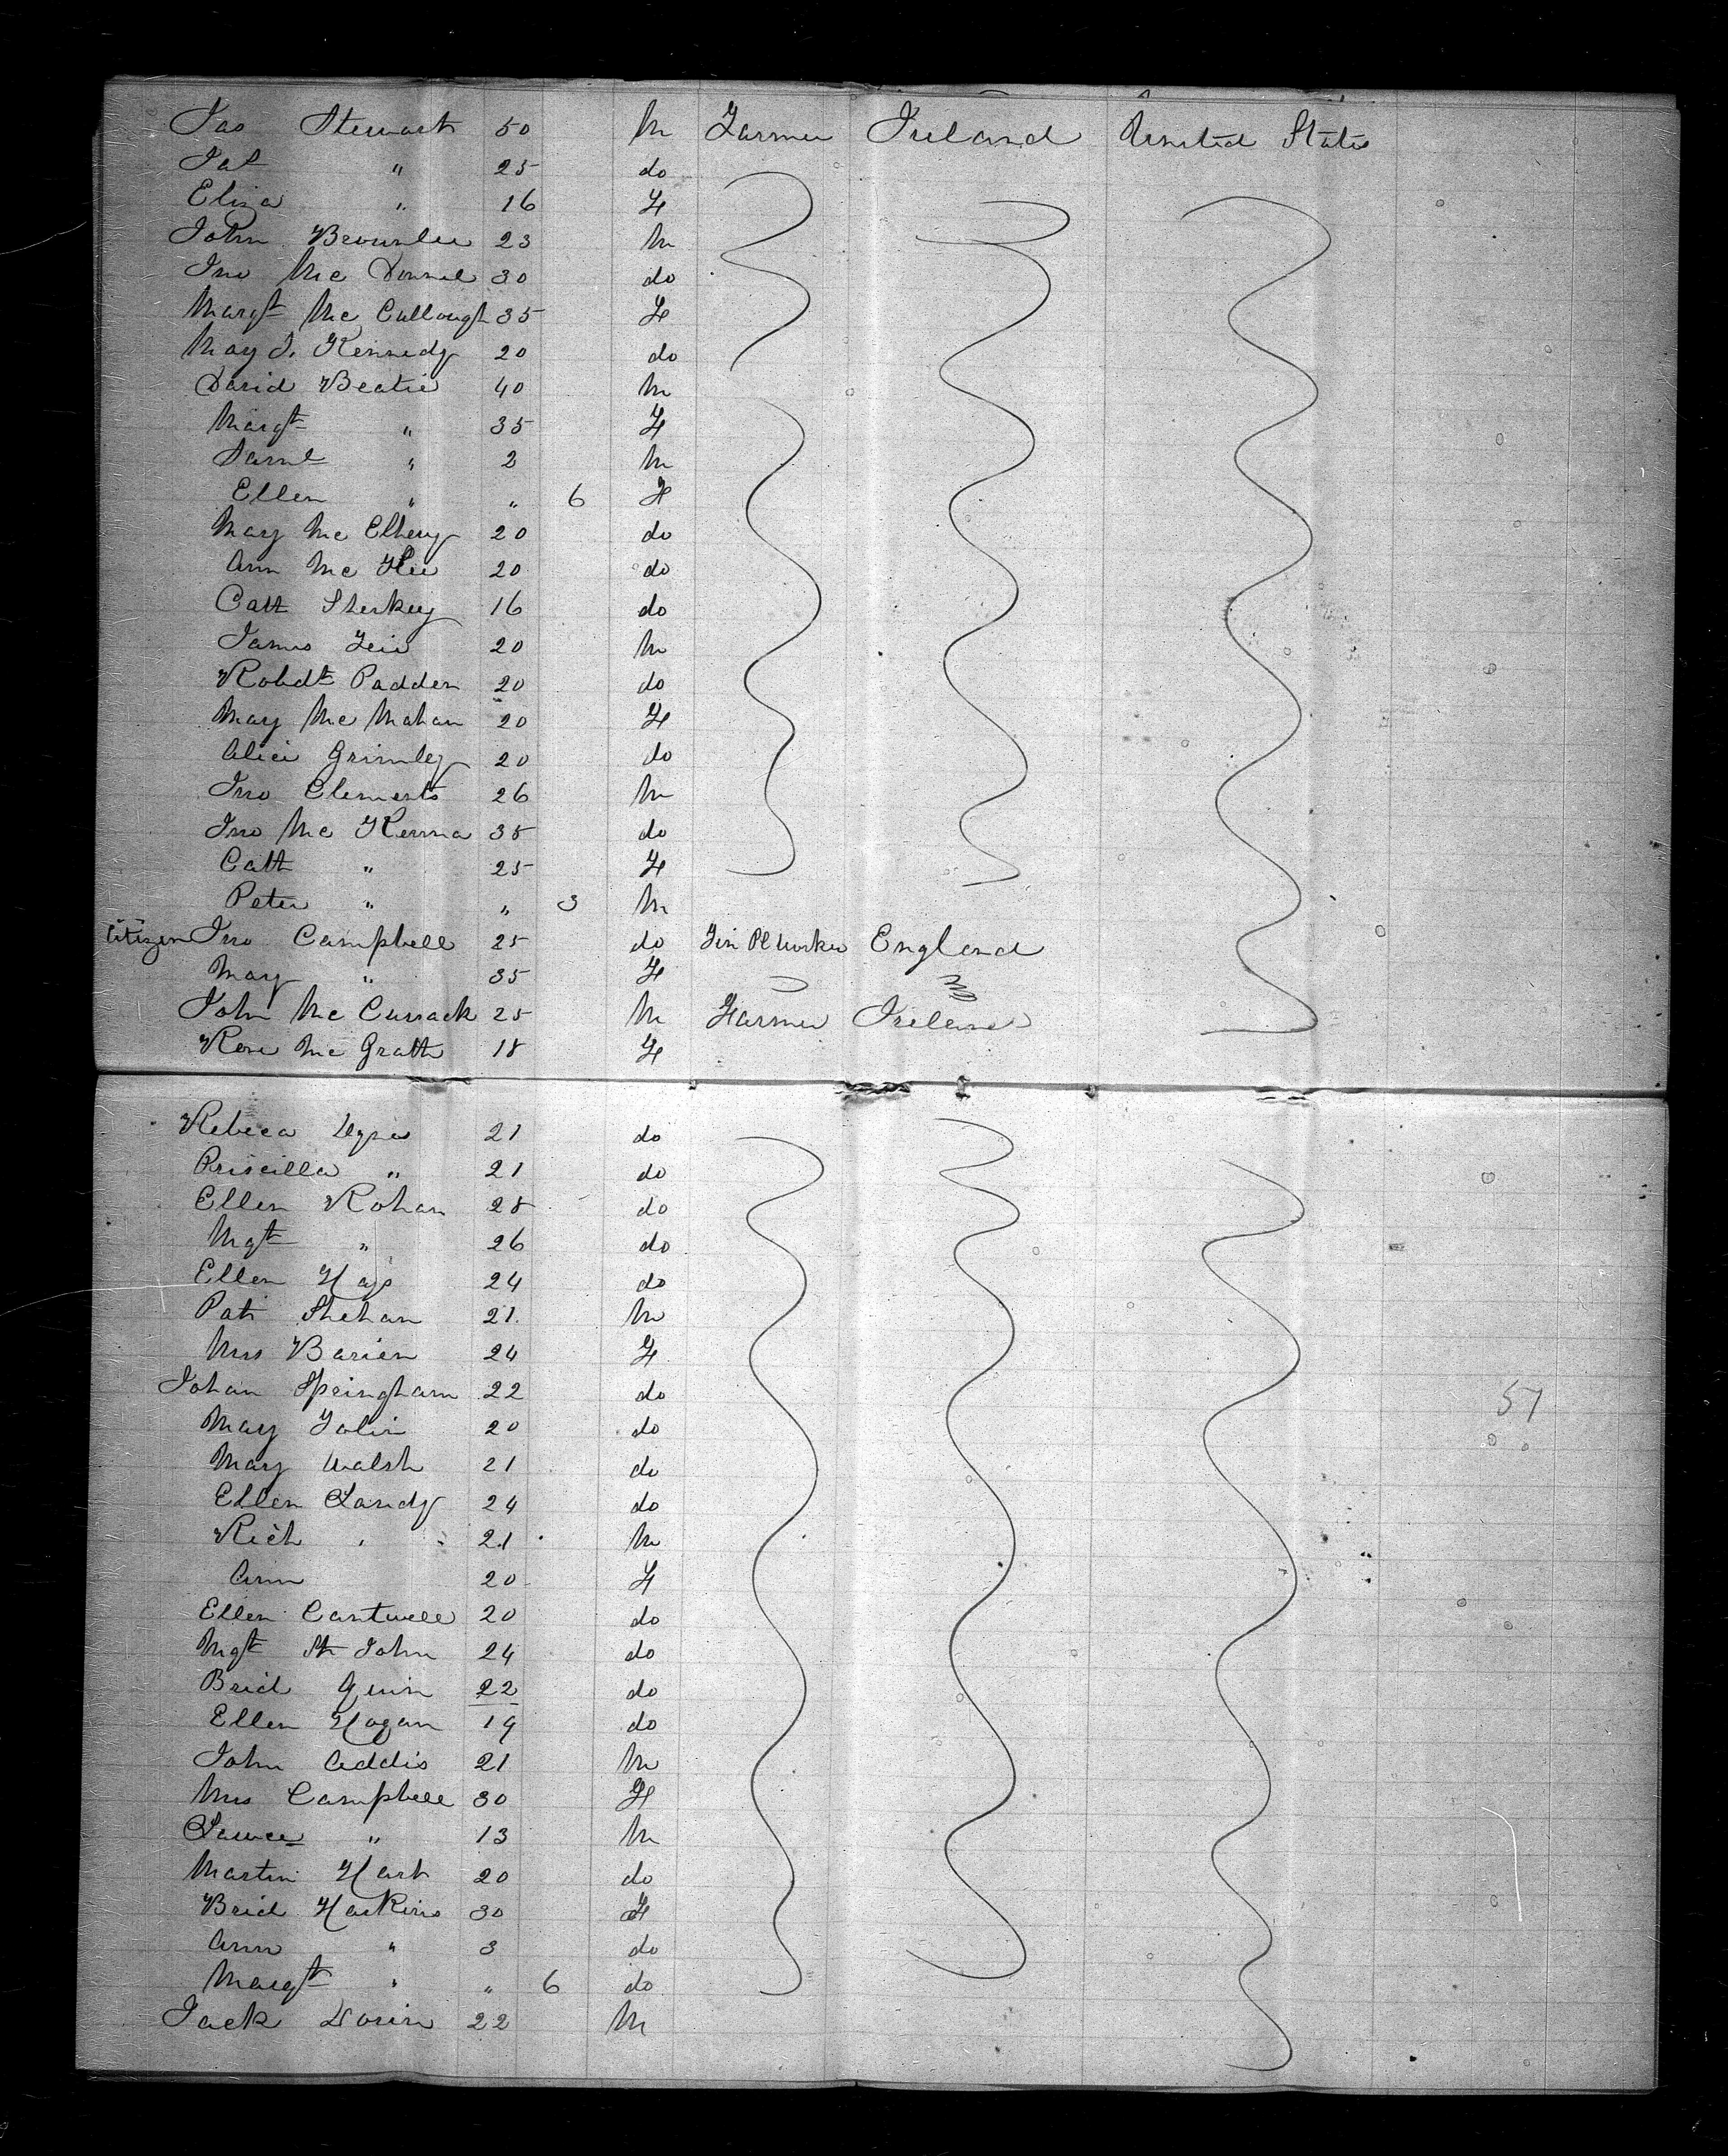 Jas Stewart 50 M Farmer Ireland United States
Pat " 25 do
Eliza " 16 F
John Brownlee 23 M
Jno Mc Donnel 30 do
Margt Mc Cullough 35 F
May J. Kennedy 20 do
David Beatie 40 M
Margt " 35 F
Saml " 2 M
Ellen " " 6 F
Mary Mc 20 do
Ann Mc Kee 20 do
Cath Sherkey 16 do
James 20 M
Robdt Padden 20 do
May Mc Mahan 20 F
Alice Grimley 20 do
Jno Clements 26 M
Jno Mc Kenna 35 do
Cath " 25 F
Peter " " 3 M
Citizen Jno Campbell 25 do Tin Pl Worker England
Mary " 35 F
John Mc Cusack 25 M Farmer Ireland
Rose Mc Grath 18 F
Rebeca 21 do
Priscilla " 21 do
Ellen Rohan 28 do
Mgt " 26 do
Ellen Hays 24 do
Pat Shehan 21 M
Mrs Barien 24 F
Johan Springham 22 do
Mary Tobin 20 do
Mary Walsh 21 do
Ellen Landy 24 do
Rich " 21 M
Ann 20 F
Ellen Cantwell 20 do
Mgt St John 24 do
Brid Quin 22 do
Ellen Hogan 19 do
John Addis 21 M
Mrs Campbell 30 F
Lawce " 13 M
Martin Hart 20 do
Brid Haskins 30 F
Ann " 3 do
Margt " " 6 do
Jack Dorin 22 M
57